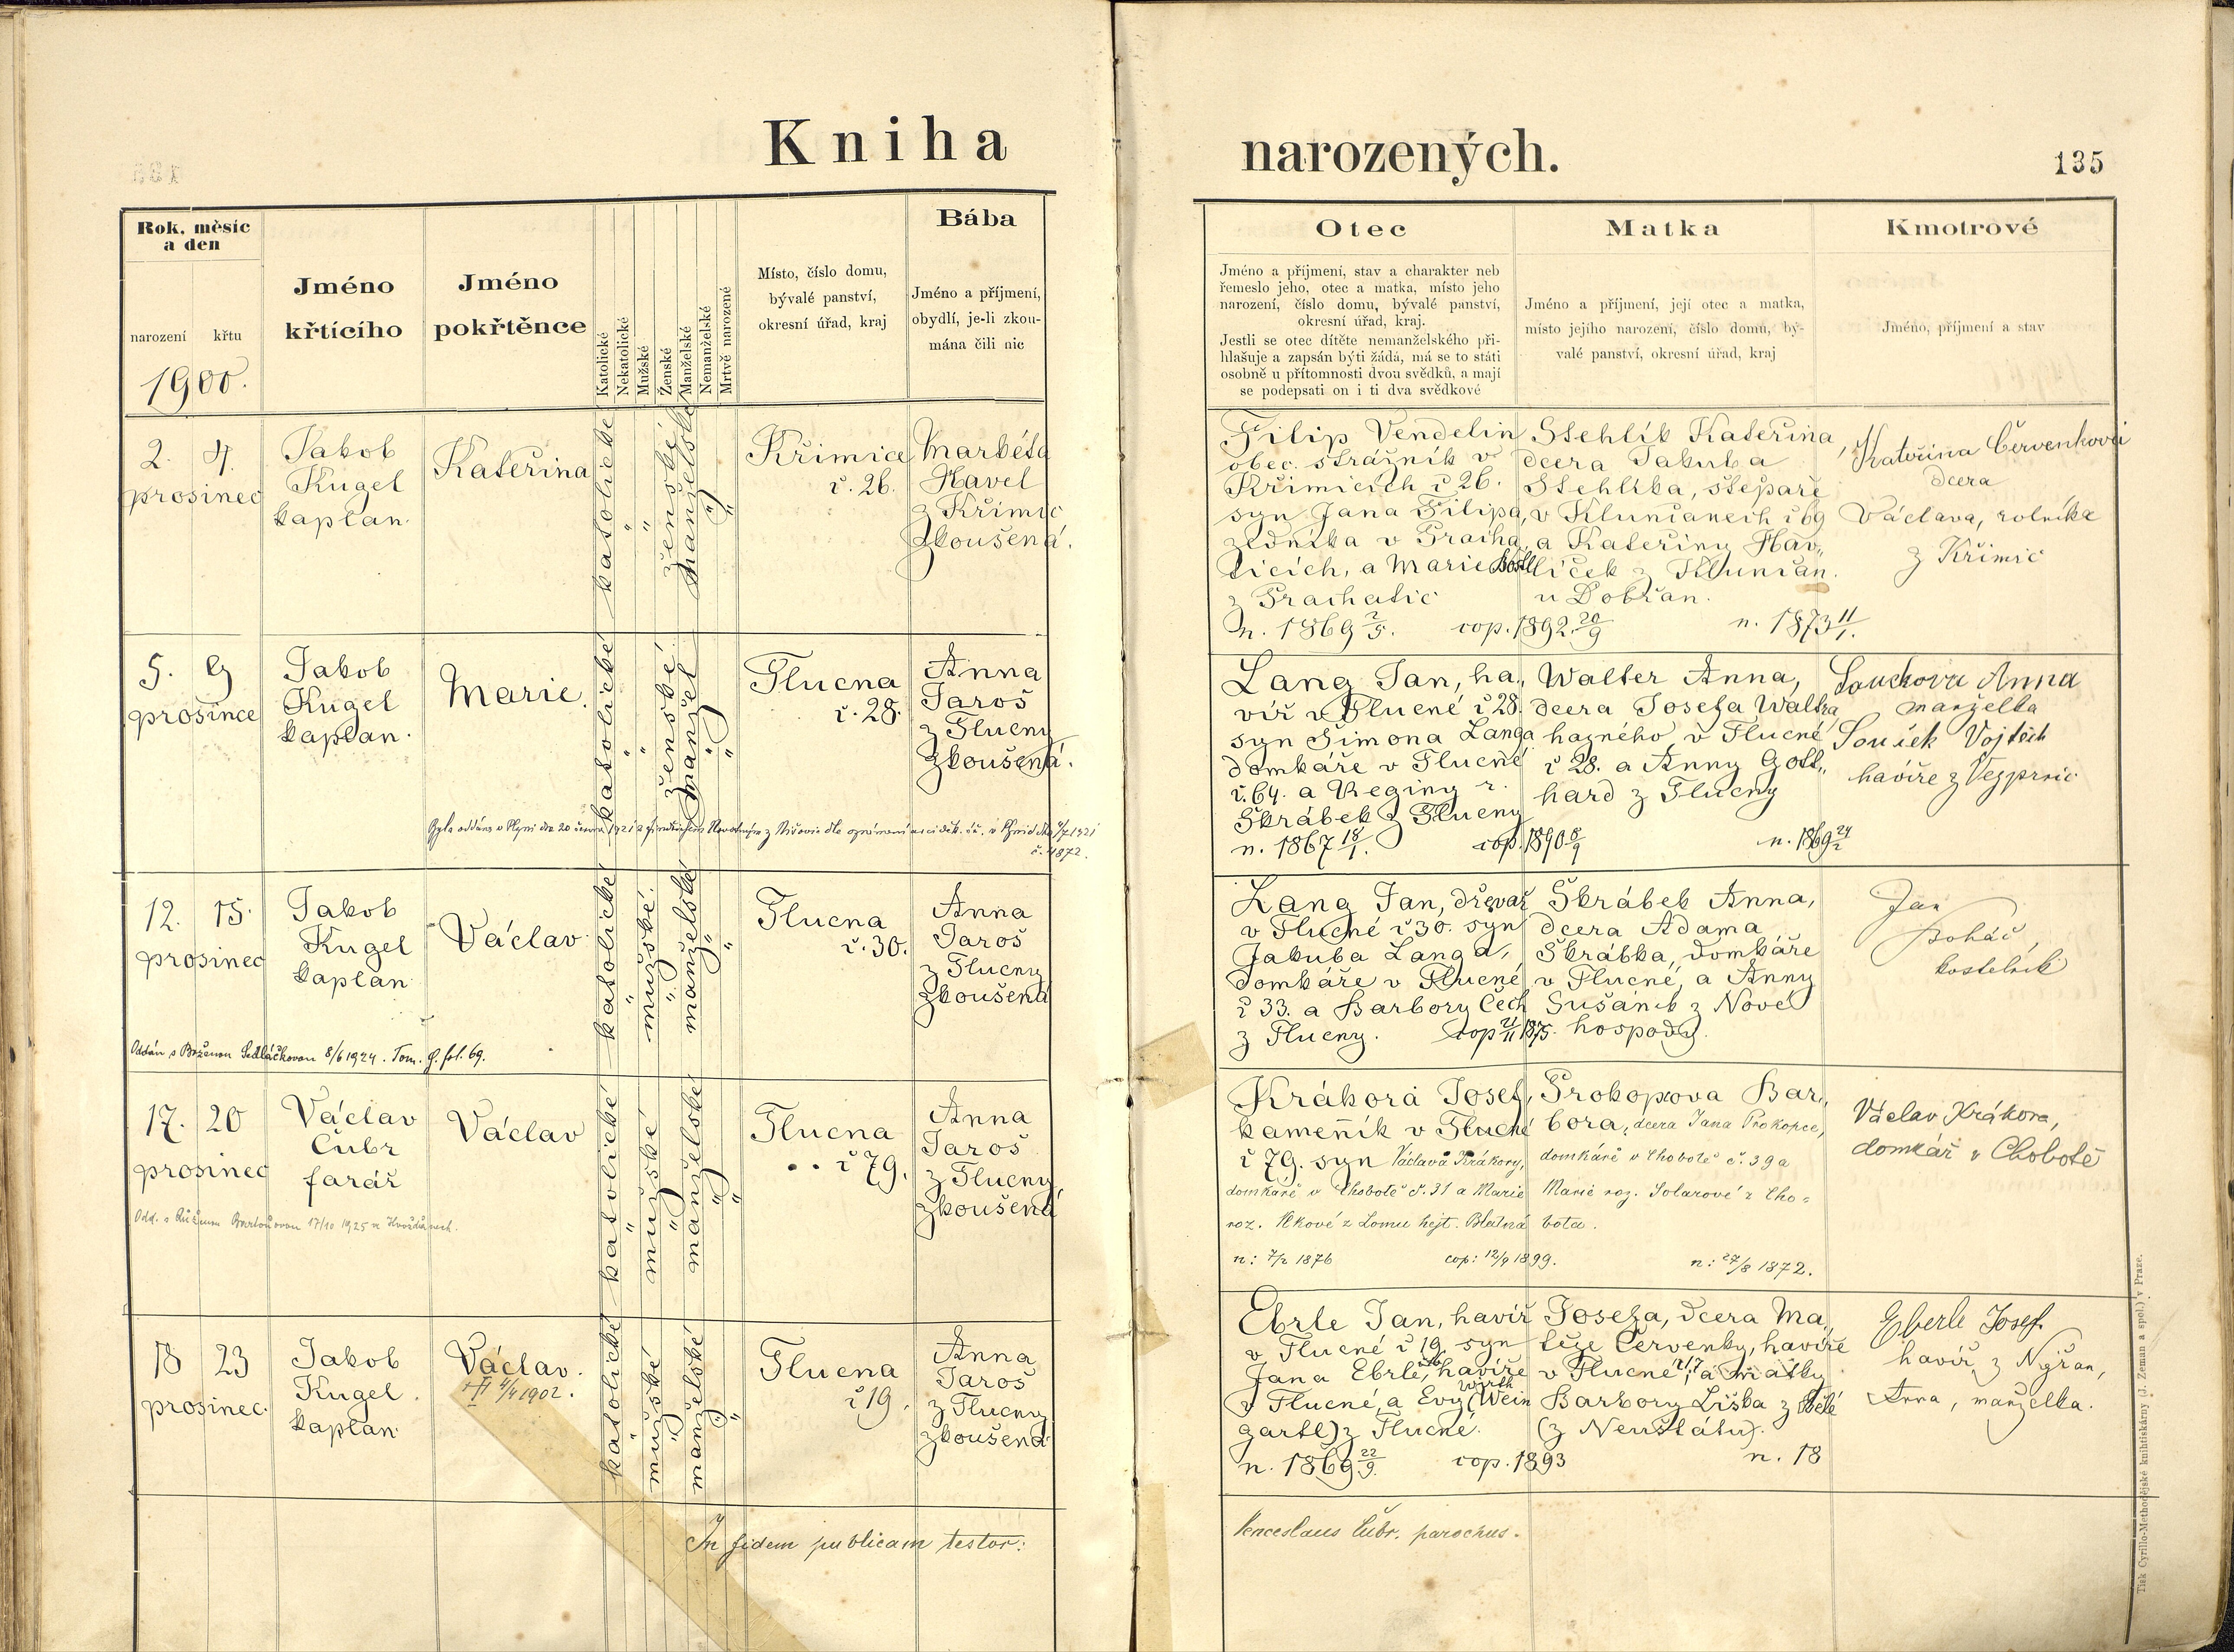 Kniha
narozených.
135
Rok, měsíc
a den
narození křtu
1900.
Jméno
křtícího
Jméno
pokřtěnce
Katolické
Nekatolické
Mužské
Ženské
Manželské
Nemanželské
Mrtvě narozené
Místo, číslo domu,
bývalé panství,
okresní úřad, kraj
Bába
Jméno a příjmení,
obydlí, je-li zkou-
mána čili nic
Otec
Jméno a příjmení, stav a charakter neb
řemeslo jeho, otec a matka, místo jeho
narození, číslo domu, bývalé panství,
okresní úřad, kraj.
Jestli se otec dítěte nemanželského při-
hlašuje a zapsán býti žádá, má se to státi
osobně u přítomnosti dvou svědků, a mají
se podepsati on i ti dva svědkové
Matka
Jméno a příjmení, její otec a matka,
místo jejího narození, číslo domu, bý-
valé panství, okresní úřad, kraj
Kmotrové
Jméno, příjmení a stav
2. 4.
prosinec
Jakob
Kugel
kaplan.
Kateřina
katolické
" "
ženské
manželské
" "
Křimice
č. 26.
Markéta
Havel
z Křimic
zkoušená.
Filip Vendelin
obec. strážník v
Křimicích č 26.
syn Jana Filipa,
zedníka v Pracha
ticích, a Marie
z Prachatic
n. 1869 2/5. cop. 1892. 20/9
Stehlík Kateřina,
dcera Jakuba
Stehlíka,
v Klunianech č 69
a Kateřiny Hav„
líček z Klunčan.
u Dobřan.
n. 1873 11/1.
Kateřina Červenková
dcera
Václava, rolníka
z Křimic
5. 9
prosince
Jakob
Kugel
kaplan.
Marie.
katolické
" "
ženské.
manžel
" "
Tlucna
č. 28.
Anna
Jaroš
z Tlucny
zkoušená.
1921
č. 4872.
Lang Jan, ha„
víř v Tlucné č 28.
syn Šimona Langa
domkáře v Tlucné
č. 64. a Reginy r.
Škrábek z Tlucny
n. 1867 18/1. cop. 1890 8/9
Walter Anna,
dcera Josefa Waltra
hajného v Tlucné
č 28. a Anny Gott„
hard z Tlucny
n. 1869 24/2
Součková Anna
manželka
Souček Vojtěch
havíře z Vejprnic
12. 15.
prosinec
Jakob
Kugel
kaplan
Václav
katolické
"
mužské.
"
manželské
" "
Tlucna
č. 30.
Anna
Jaroš
z Tlucny
zkoušená
Oddán s Boženou Sedláčkovou 8/6 1924. Tom. G. fol. 69.
Lang Jan, dřevař
v Tlucné č 30. syn
Jakuba Langa,
domkáře v Tlucné
č 33. a Barbory Čech
z Tlucny. cop 21/11 1875.
Škrábek Anna,
dcera Adama
Škrábka, domkáře
v Tlucné, a Anny
Sušánek z Nové
hospody.
Jan
Boháč,
kostelník
17. 20
prosinec
Václav
Čubr
farář
Václav
katolické
"
mužské
"
manželské
" "
Tlucna
č 79.
Anna
Jaroš
z Tlucny,
zkoušená
Odd. s Růženou Bartoňovou 17/10 1925 ve Hvožďanech.
Krákora Josef,
kameník v Tlucné
č 79. syn Václava Krákory,
domkáře v Chobotě č. 31 a Marie
roz. Vlkové z Lomu hejt. Blatná
n: 7/2 1876 cop: 12/9 1899.
Prokopova Bar„
bora, dcera Jana Prokopce,
domkáře v Chobotě č. 39 a
Marie roz. Solarové z Cho-
bota.
n: 27/8 1872.
Václav Krákora,
domkář v Chobotě
18 23
prosinec.
Jakob
Kugel.
kaplan.
Václav.
4/4 1902.
katolické
"
mužské
"
manželské
" "
Tlucna
č 19.
Anna
Jaroš
z Tlucny
zkoušená.
Ebrle Jan, havíř
v Tlucné č 19. syn
Jana Ebrle, havíře
v Tlucné, a Evy (Wein
gartl) z Tlucné.
n. 1869 22/9. cop. 1893
Josefa, dcera Ma„
těje Červenky, havíře
v Tlucné, a matky
Barbory Liška z Bělé
(z Neustátu).
n. 18
Eberle Josef.
havíř z Nýřan,
Anna, manželka.
In fidem publicam testor:
Venceslaus Čubr. parochus.
Tisk Cyrillo-Methodějské knihtiskárny (J. Zeman a spol.) v Praze.